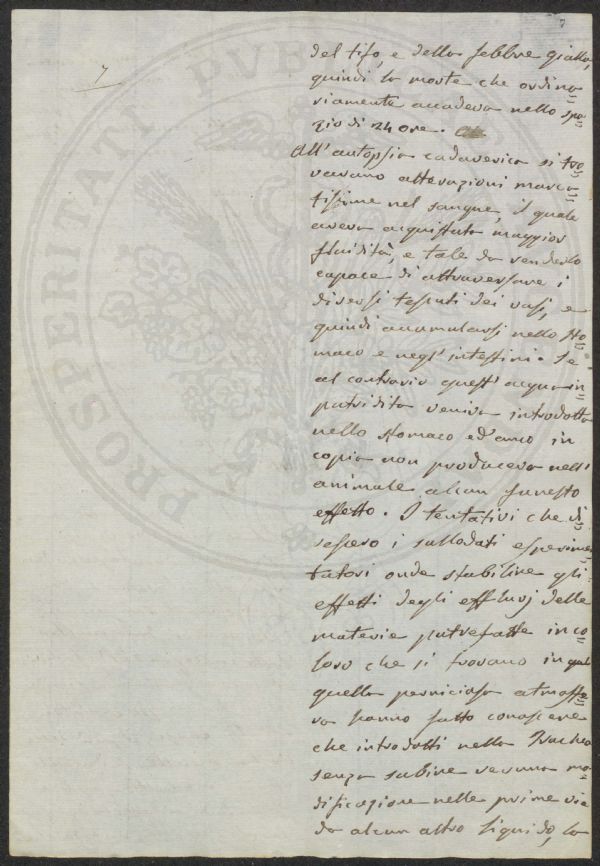 7
7
del tifo, e della febbre gialla,
quindi la morte che ordina=
riamente accadeva nello spa=
zio di 24 ore.
All'autopsia cadaverica si tro=
vavano alterazioni marca=
tissime nel sangue, il quale
aveva acquistato maggior
fluidità, e tale da renderlo
capace di attraversare i
diversi tessuti dei vasi, e
quindi accumularsi nello sto=
maco e negl'intestini. Se
al contrario quest'acqua im=
putridita veniva introdotta
nello stomaco ed'anco in
copia non produceva nell'
animale alcun funesto
effetto. I tentativi che di=
ressero i sullodati esperimen=
tatori onde stabilire gli
effetti degli effluvj delle
materie putrefatte in co=
loro che si trovano in
quella perniciosa atmosfe=
ra hanno fatto conoscere
che introdotti nella Trachea
senza subire veruna mo=
dificazione nelle prime vie
da alcun altro liquido, la
PROSPERITATI PVB